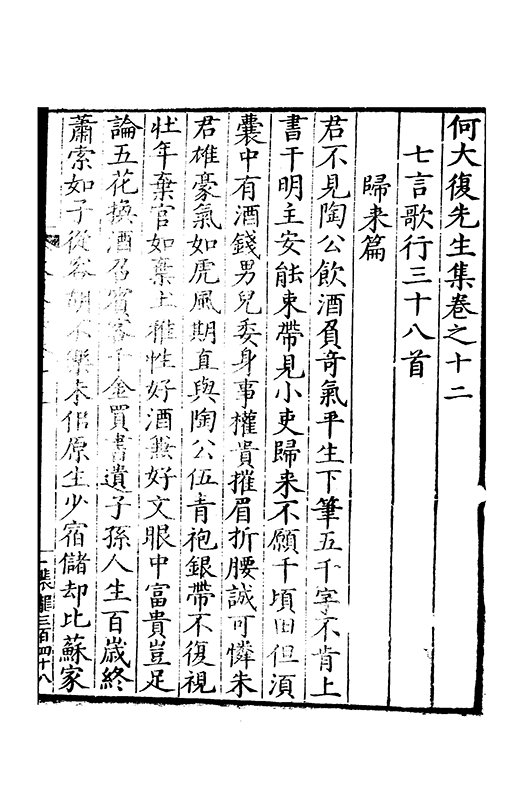 何大復先生集卷之十二
七言歌行三十八首
歸來篇
君不見陶公飲酒負奇氣平生下筆五千字不肯上
書干明主安能束帶見小吏歸来不願千頃田但湏
囊中有酒錢男兒委身事權貴摧眉折腰誠可憐朱
君雄豪氣如虎風期直與陶公伍青袍銀帶不復視
壮年棄官如棄土雅性好酒兼好文眼中富貴豈足
論五花換酒召賓客千金買書遺子孫人生百歲終
蕭索如子從容胡不樂朱侣原生少宿儲却比蘇家
三百四十八